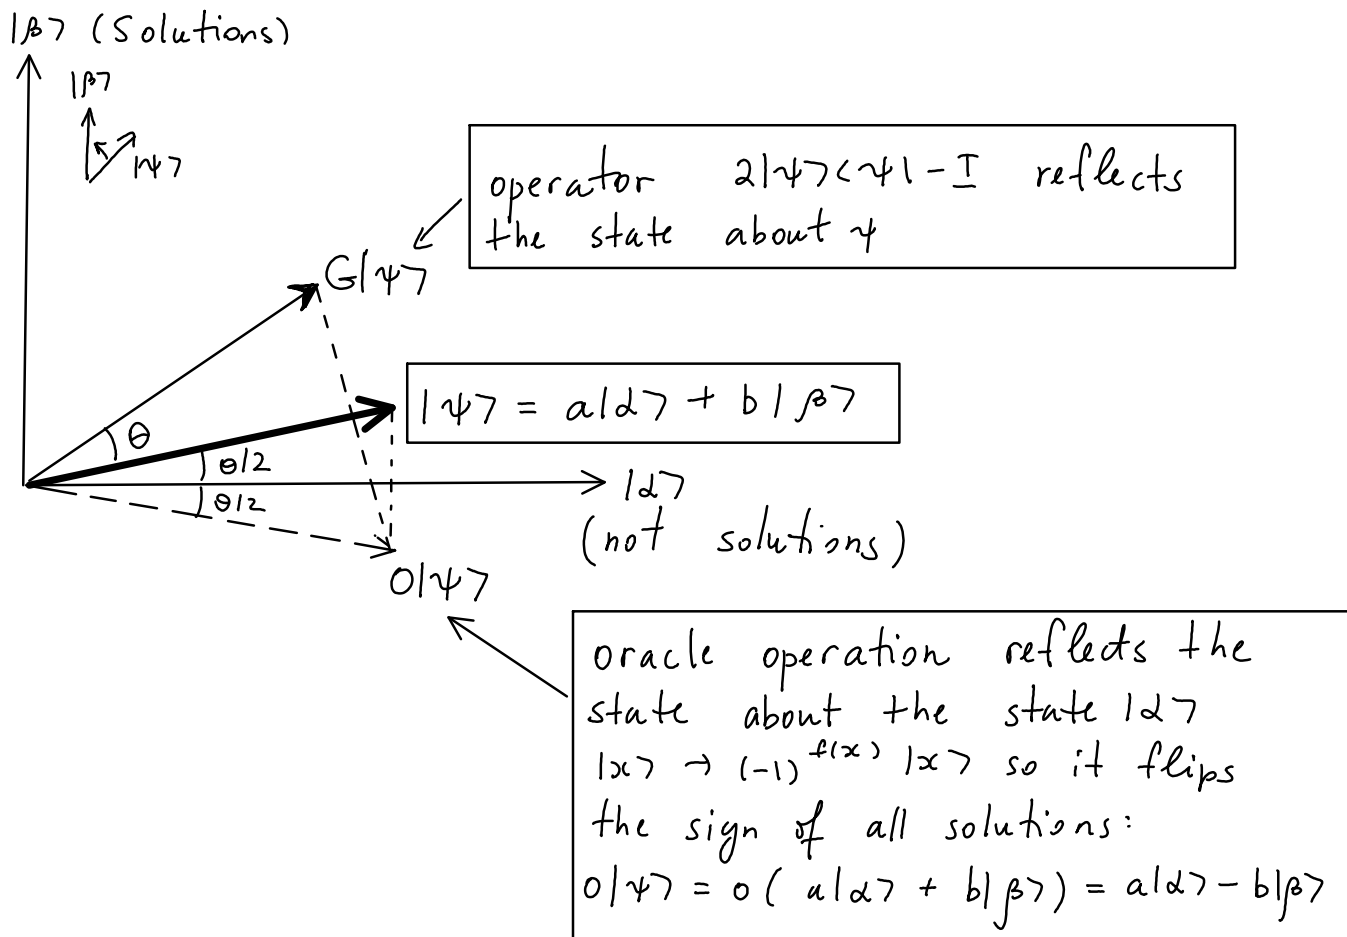 |β⟩ (Solutions)
|β⟩
|ψ⟩
operator 2|ψ⟩<ψ| - I reflects
the state about ψ
G|ψ⟩
|ψ⟩ = a|α⟩ + b|β⟩
θ
θ/2
θ/2
|α⟩
(not solutions)
O|ψ⟩
oracle operation reflects the
state about the state |α⟩
|x⟩ → (-1)^f(x) |x⟩ so it flips
the sign of all solutions:
O|ψ⟩ = O( a|α⟩ + b|β⟩) = a|α⟩ - b|β⟩